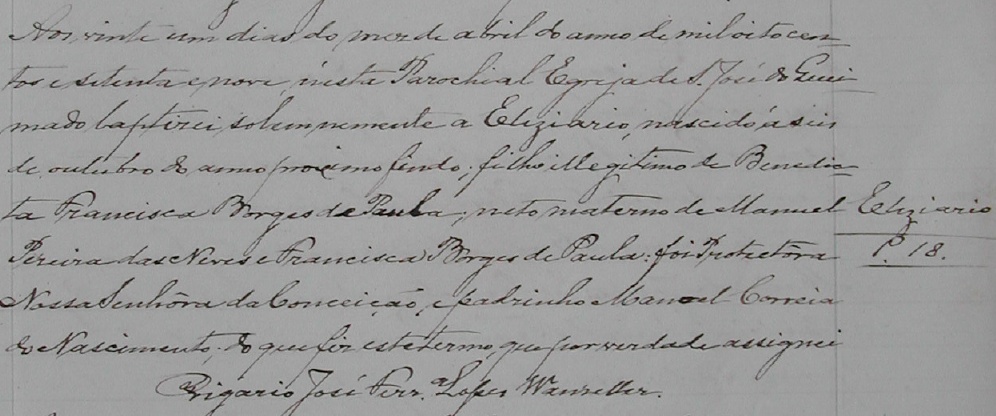 Aos vinte um dias do mez de abril do anno de mil oitocen=
tos e setenta e nove, nesta Parochial Egreja de S. José do Quei=
mado baptizei solemnemente a Eliziario, nascido á seis
de outubro do anno proximo findo, filho illegitimo de Benedic=
ta Francisca Borges de Paula, neto materno de Manuel
Pereira das Neves e Francisca Borges de Paula: foi Protectôra
Nossa Senhôra da Conceição, e padrinho Manoel Correia
do Nascimento, do que fiz este termo, que por verdade assignei
Vigario José Ferr.ª Lopes Wanzeller.
Eliziario
P. 18.